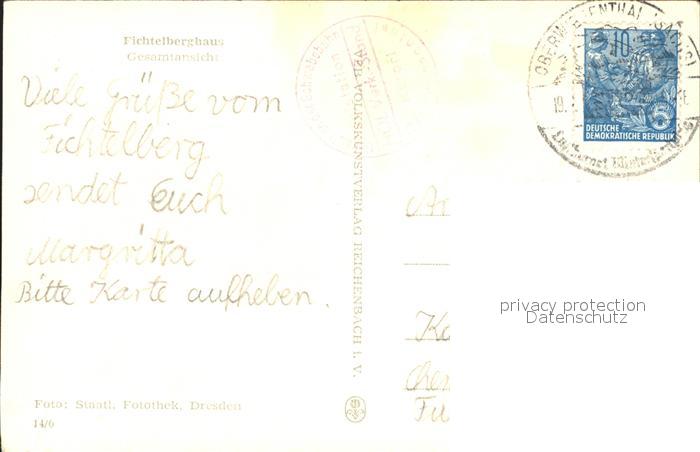 Fichtelberghaus
Gesamtansicht
Viele Grüße vom
Fichtelberg
sendet Euch
Margritta
Bitte Karte aufheben.
Foto: Staatl. Fotothek, Dresden
14/6
VEB VOLKSKUNSTVERLAG REICHENBACH i. V.
OBERWIESENTHAL (SACHS)
19.
10
DEUTSCHE
DEMOKRATISCHE REPUBLIK
privacy protection
Datenschutz